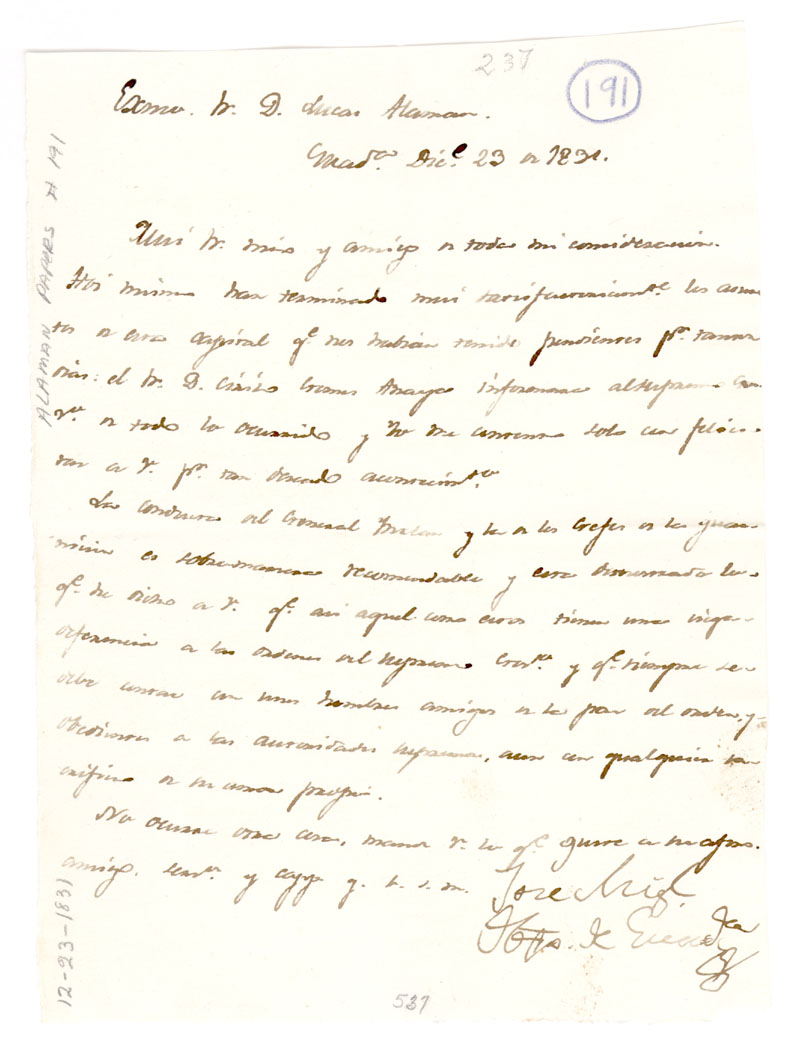 237
191
Exmo. Sr. D. Lucas Alaman.
Dic.e 23 de 1831.
Mui Sr. mio y amigo de toda mi consideracion.
Hoi mismo han terminado mui satisfactoriam.te los asun-
tos de esa capital q.e nos habian tenido pendientes p.r tantos
dias: el Sr. D. Cirilo Gomes Anaya informara al Supremo Go-
v.no de todo lo ocurrido y Yo me contento solo con felici-
tar a V. p.r tan deseado acontecim.to
La conducta del General y la de los Gefes de la guar-
nicion es sobremanera recomendable y esta demostrado lo
q.e he dicho a V. q.e asi aquel como estos tienen una ciega
deferencia a las ordenes del Supremo Gov.no y q.e siempre se
debe contar con unos hombres amigos de la paz del orden, y
obedientes a las autoridades supremas, aun con qualquier sa-
crificio de su amor propio.
No ocurre otra cosa, mande V. lo q.e guste a su afmo.
amigo, serv.r y capp.n q. b. s. m.
Jose Mig.l
Obpo. de
ALAMAN PAPERS # 191
12-23-1831
537